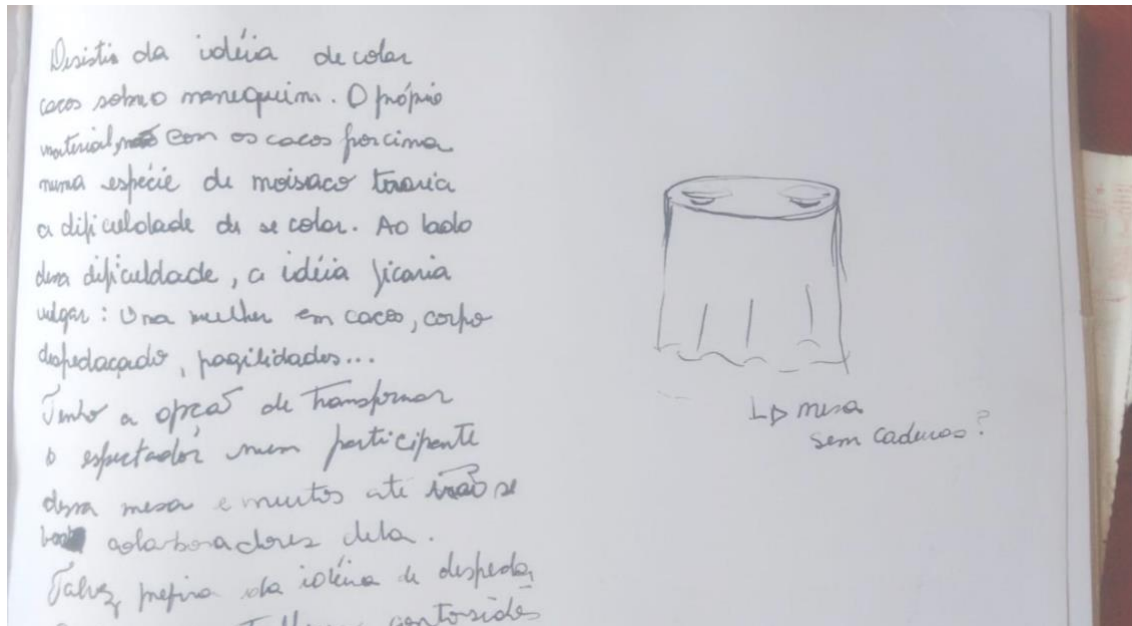 Desisti da idéia de colar
cacos sobre o manequim. O próprio
material, com os cacos por cima
numa espécie de moisaco traria
a dificuldade de se colar. Ao lado
dessa dificuldade, a idéia ficaria
vulgar: Uma mulher em cacos, corpo
despedaçado, fragilidades...
Tenho a opção de transformar
o espectador num participante
dessa mesa e muitos até irão se
colaboradores dela.
Talvez prefira da idéia de
mesa
sem cadeiras?